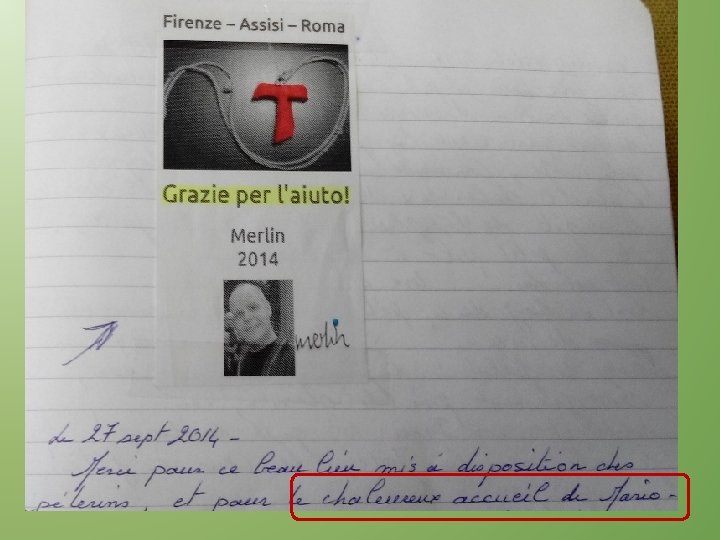 Firenze – Assisi – Roma
Grazie per l'aiuto!
Merlin
2014
merlin
Le 27 sept 2014 -
Merci pour ce beau lieu mis à disposition des
pélerins, et pour le chaleureux accueil de Mario -